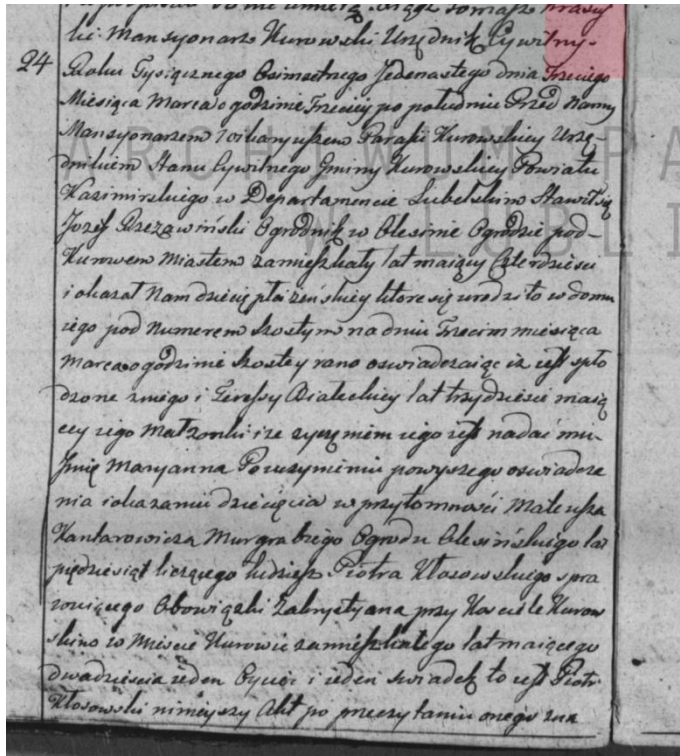 ki Mansyonarz Kurowski Urzędnik Cywilny.
24
Roku Tysiącznego Osimsetnego Jedenastego dnia Trzeciego
Miesiąca Marca o godzinie Trzeciey po południu Przed Namy
Mansyonarzem Wikaryuszem Parafii Kurowskiey Urzę-
dnikiem Stanu Cywilnego Gminy Kurowskiey Powiatu
Kazimirskiego w Departamencie Lubelskim Stawił się
Jozef Ogrodnik w Olesinie Ogrodzie pod-
Kurowem Miastem zamieszkały lat maiący Czterdzieści
i okazał Nam dziecię płci żeńskiey ktore się urodziło w domu
iego pod Numerem szostym na dniu Trzecim miesiąca
Marca o godzinie szostey rano oswiadczaiąc iż iest spło
dzone z niego i Teressy Białeckiey lat trzydzieści maią
cey iego Małżonki i że życzeniem iego iest nadać mu-
Jmię Maryanna Po uczynieniu powyszego oswiadcze
nia i okazaniu dziecięcia w przytomności Mateusza
Kantarowicza Murgrabiego Ogrodu Olesińskiego lat
pięćdziesiąt liczącego tudziesz Piotra Kłosowskiego spra
wuiącego Obowiązki Zakrystyana przy Kosciele Kurow
skim w Miescie Kurowie zamieszkałego lat maiącego
dwadzieścia ieden Oyciec i ieden swiadek to iest Piotr
Kłosowski ninieyszy Akt po przeczytaniu onego
ARCHIWUM PA
W LUBLI